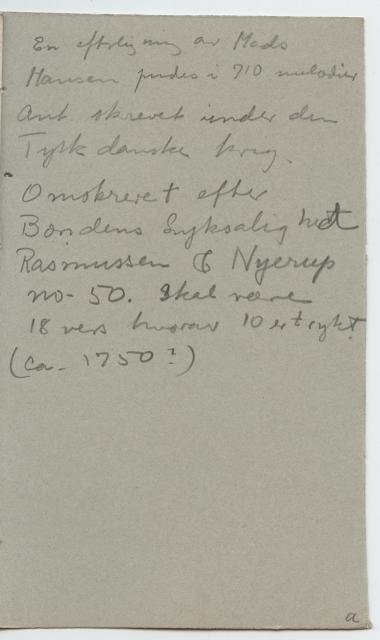 En efterligning av Mads
Hansen findes i 710 melodier
Ant. skrevet under den
Tysk danske krig.
Omskrevet efter
Bondens Lyksalighed
Rasmussen & Nyerup
no- 50. Skal være
18 vers hvorav 10 er trykt.
(ca- 1750?)
a